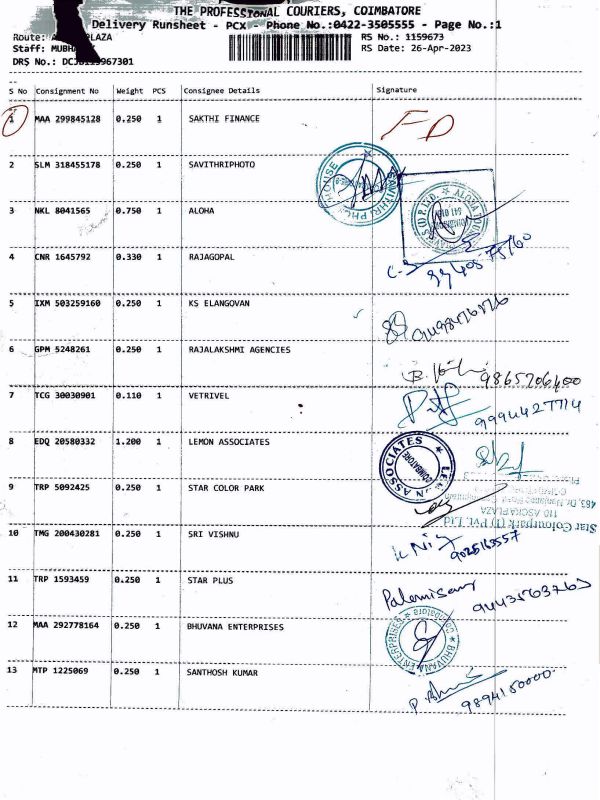 THE PROFESSIONAL COURIERS, COIMBATORE
Delivery Runsheet - PCX - Phone No.:0422-3505555 - Page No.:1
Route: PLAZA
RS No.: 1159673
Staff:
RS Date: 26-Apr-2023
DRS No.:
S No Consignment No Weight PCS Consignee Details Signature
1 MAA 299845128 0.250 1 SAKTHI FINANCE FD
2 SLM 318455178 0.250 1 SAVITHRIPHOTO
3 NKL 8041565 0.750 1 ALOHA
4 CNR 1645792 0.330 1 RAJAGOPAL
5 IXM 503259160 0.250 1 KS ELANGOVAN
6 GPM 5248261 0.250 1 RAJALAKSHMI AGENCIES
9865706400
7 TCG 30030901 0.110 1 VETRIVEL
9994427714
8 EDQ 20580332 1.200 1 LEMON ASSOCIATES
LEMON ASSOCIATES
COIMBATORE
9 TRP 5092425 0.250 1 STAR COLOR PARK
Star Colourpark (I) Pvt. Ltd
110 ASCRA PLAZA
10 TMG 200430281 0.250 1 SRI VISHNU
9025163557
11 TRP 1593459 0.250 1 STAR PLUS
9443563763
12 MAA 292778164 0.250 1 BHUVANA ENTERPRISES
BHUVANA ENTERPRISES
13 MTP 1225069 0.250 1 SANTHOSH KUMAR
9894150000